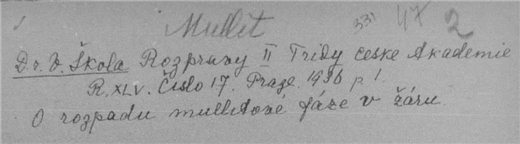 Mullit 331 47 2
Dr. V. Škola Rozpravy II Třidy česke Akademie
R. XLV. Čislo 17. Praze. 1936 p 1.
O rozpadu mullitové fáze v žáru.